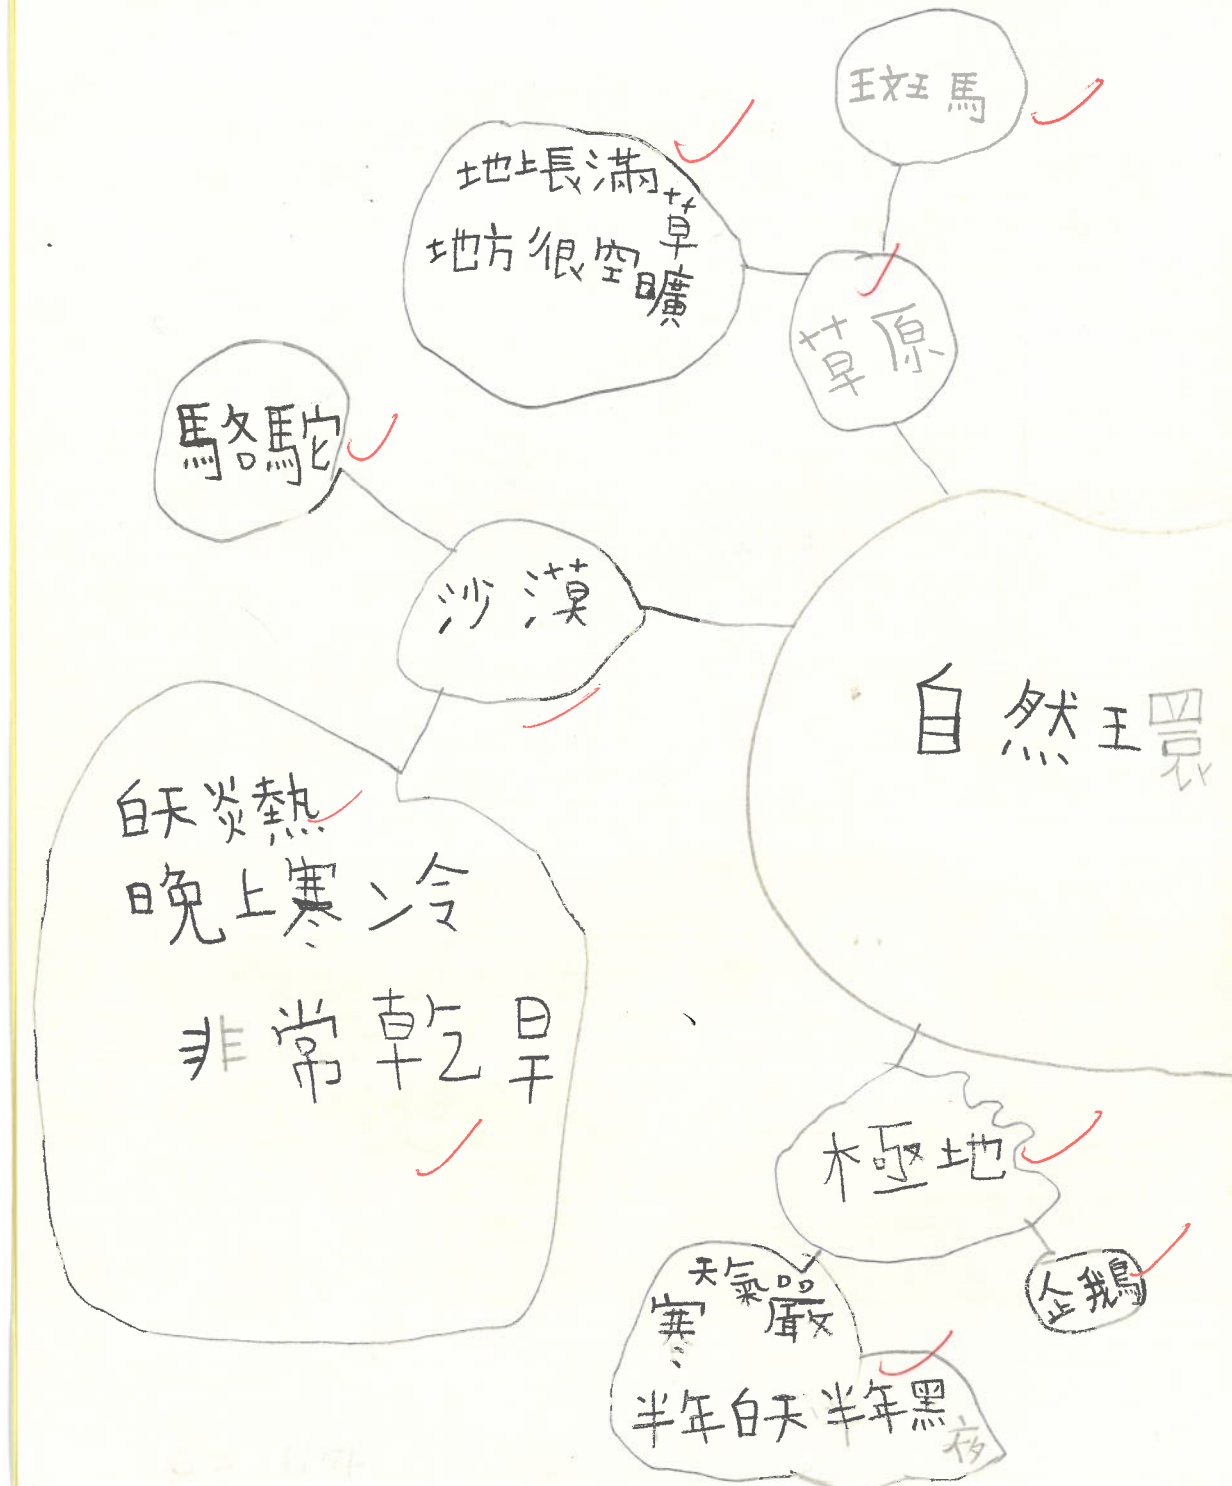 斑馬
地上長滿草
地方很空曠
草原
駱駝
沙漠
自然環
白天炎熱
晚上寒冷
非常乾旱
極地
企鵝
天氣嚴寒
半年白天半年黑夜